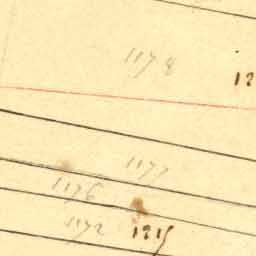 1178
12
1177
1176
1172 1215